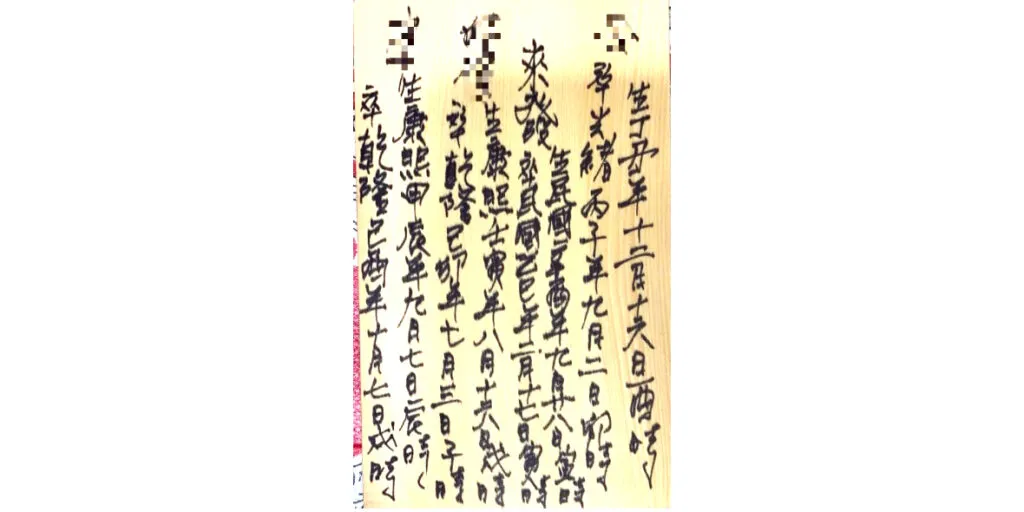 生丁丑年十二月十六日酉時
卒光緒丙子年九月二日卯時
來
生民國辛酉年九月廿八日寅時
卒民國乙巳年二月十七日寅時
生康熙壬寅年八月十六日戌時
卒乾隆己卯年七月三日子時
生康熙甲辰年九月七日辰時
卒乾隆己酉年十月七日戌時